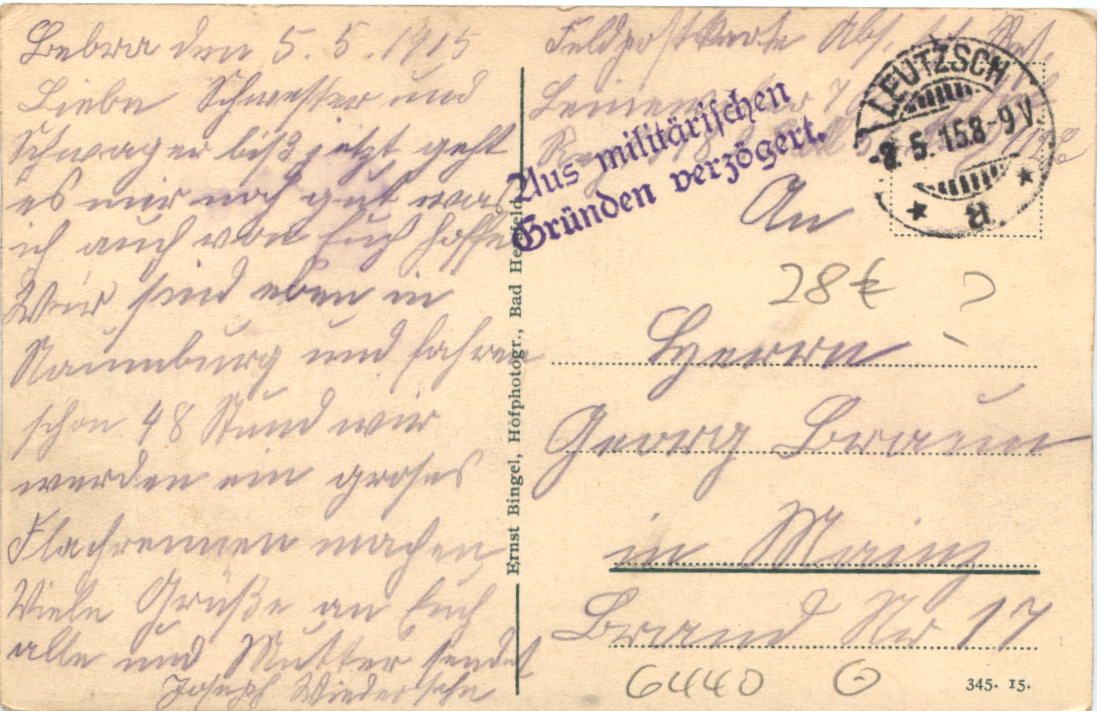 Bebra den 5.5.1915
Liebe Schwester und
Schwager biß jetzt geht
es mir noch gut was
ich auch von Euch hoffe
Wir sind eben in
Naumburg und fahren
schon 48 Stund wir
werden ein groses
Flachrennen machen
Viele Grüße an Euch
alle und Mutter sendet
Joseph Wiedersehn
Ernst Bingel, Hofphotogr., Bad Hersfeld.
Feldpostkarte Abs.
Aus militärischen
Gründen verzögert.
LEUTZSCH
8.5.15.8-9V.
An
28€ ?
Herrn
Georg Braun
in Mainz
Brand Nr 17
6440
345. 15.